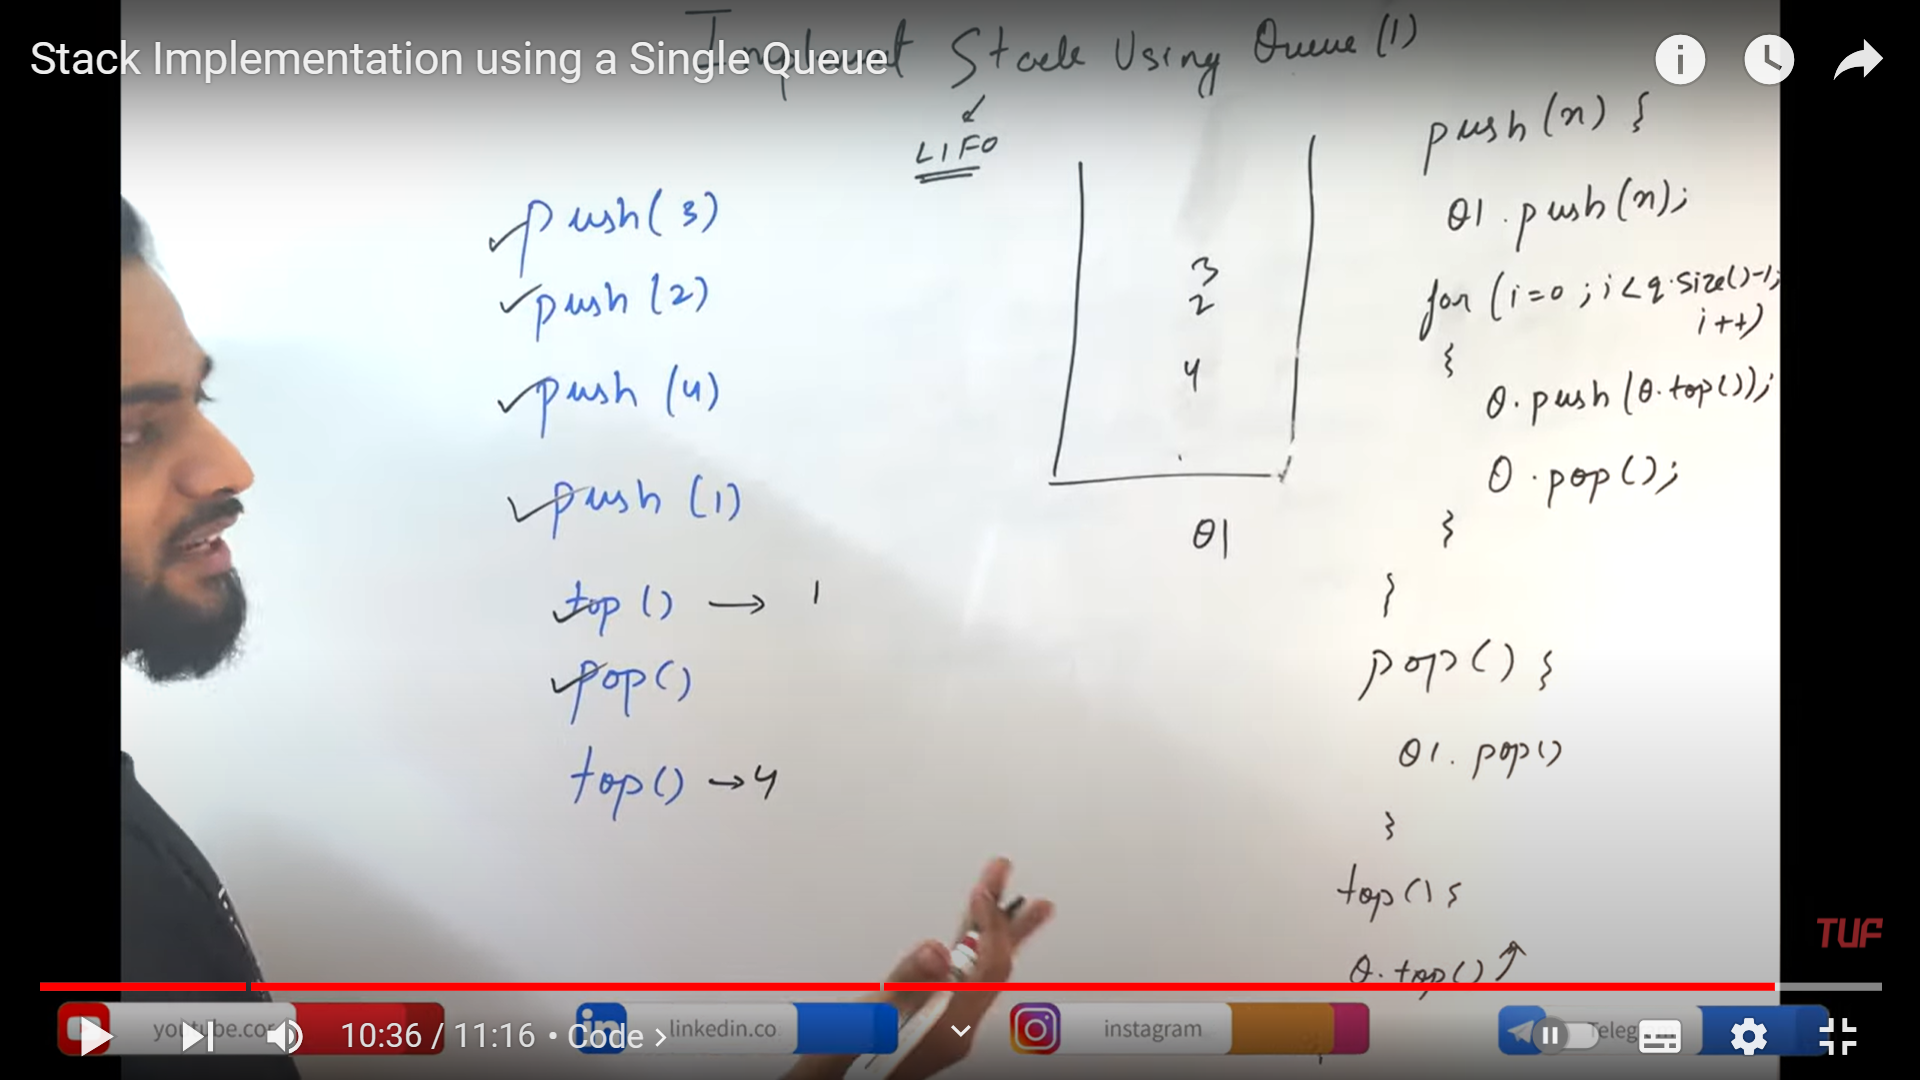 Stack Implementation using a Single Queue
Implement Stack Using Queue (1)
LIFO
push(3)
push(2)
push(4)
push(1)
top() → 1
pop()
top() → 4
3
2
4
Q1
push(n) {
Q1.push(n);
for (i=0; i<q.size()-1;
i++)
{
Q.push(Q.top());
Q.pop();
}
}
pop() {
Q1.pop()
}
top() {
Q.top() ↑
TUF
10:36 / 11:16 • Code >
linkedin.co
instagram